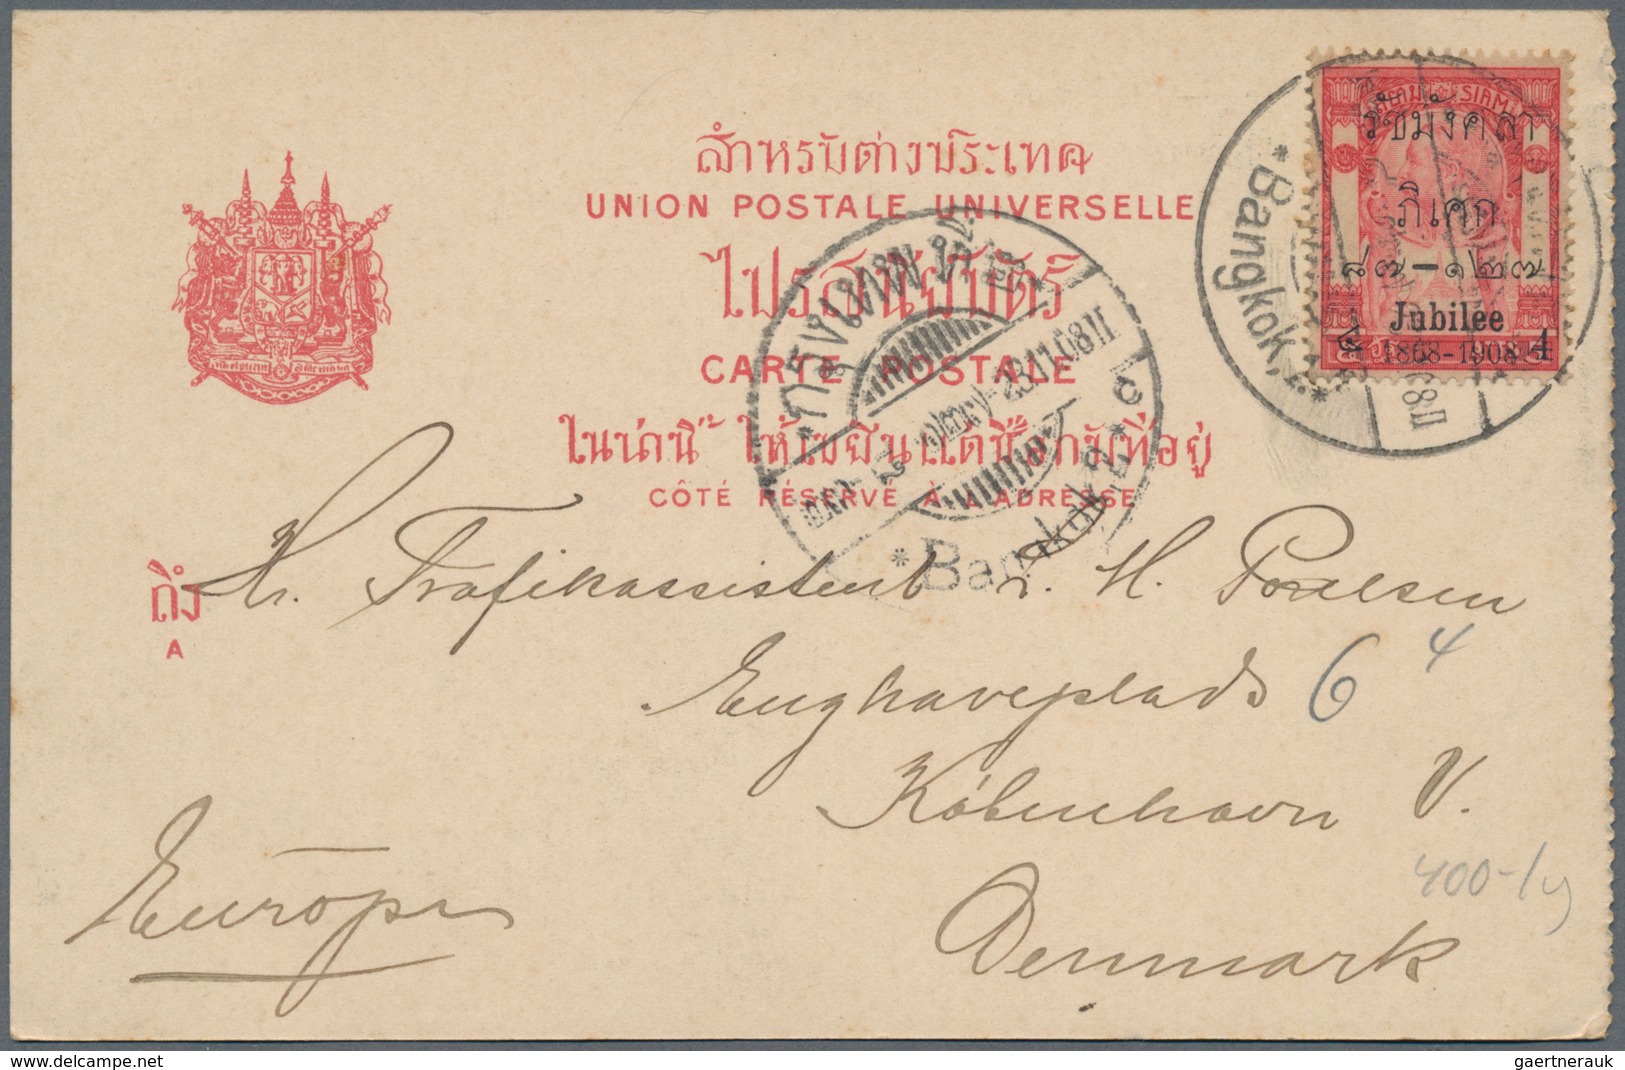 สำหรับต่างประเทศ
UNION POSTALE UNIVERSELLE
ไปรสนียบัตร์
CARTE POSTALE
ในน่านี้ ให้เขียนแต่ชื่อกับที่อยู่
CÔTÉ RÉSERVÉ À L'ADRESSE
SIAM
รัชมังคลา
ภิเศก
๘๗-๑๒๗
Jubilee
1868-1908
4
*Bangkok,
กรุงเทพฯ
28.11.08 II
*Bangkok 2.*
ถึง
A
Hr. Trafikassistent L. H. Poulsen
Enghaveplads 6 4
København V.
Denmark
Europa
400-
delcampe.net
gaertnerauk